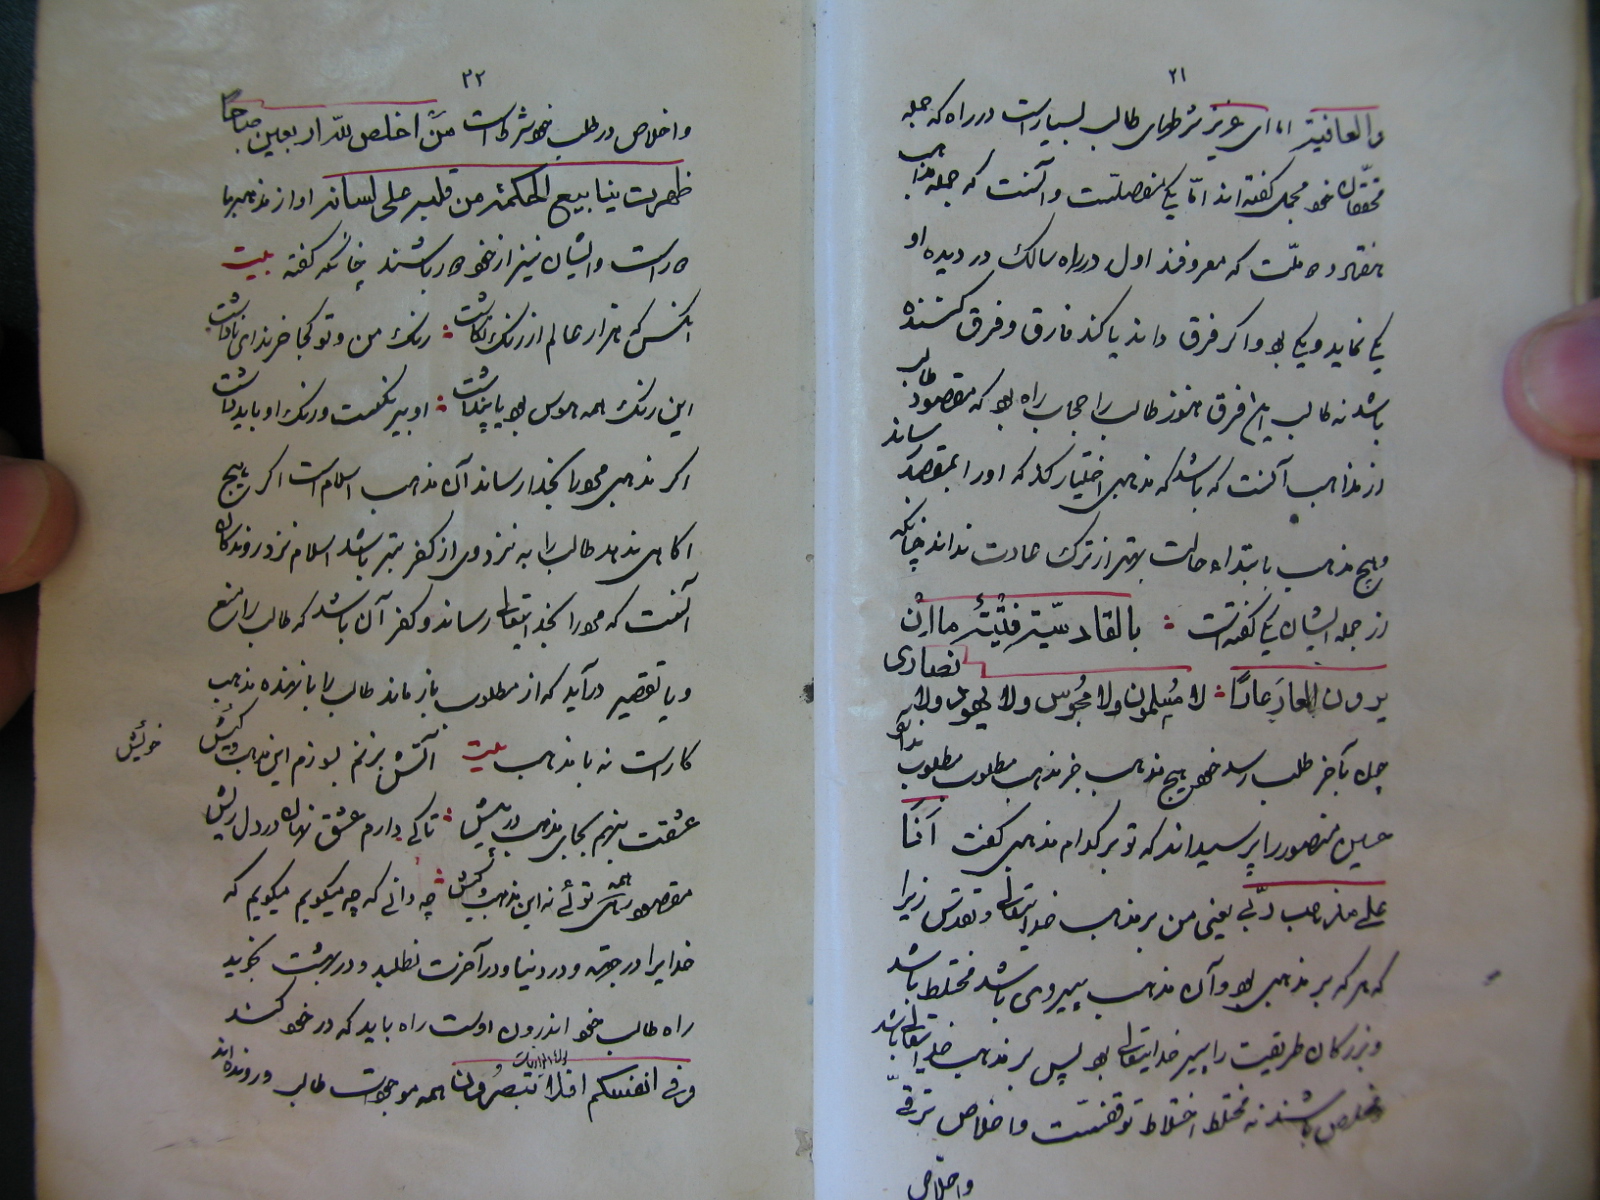 ۲۱
والعافیة اما ای عزیز شرطهای طالب بسیار است در راه که جمله
محققان خود مجمل گفته اند امّا یکی مفصلست و آنست که جمله مذاهب
هفتاد و دو ملّت که معروفند اول در راه سالک در دیده او
یکی نماید و یکی بود و اگر فرق داند یا کند فارق و فرق کننده
باشد نه طالب این فرق هنوز طالب را حجاب راه بود که مقصود طالب
از مذاهب آنست که باشد که مذهبی اختیار کند که او را بمقصد رساند
و هیچ مذهب بابتداء حالت بهتر از ترک عادت نداند چنانکه
از جمله ایشان یکی گفته است بالقادسیّة فِتْیَةٌ ما ان
یرون العار عارًا لا مُسلمون ولا مجوس ولا یهود ولا نصاری
چون بآخر طلب رسد خود هیچ مذهب جز مذهب مطلوب ندارد
حسین منصور را پرسیدند که تو بر کدام مذهبی گفت اَنَا
علی مذهب ربّی یعنی من بر مذهب خدایتعالی و تقدس زیرا
که هر که بر مذهبی بود و آن مذهب پیروی باشد مختلط باشد
و بزرگان طریقت را پیر خدایتعالی بود پس بر مذهب خدایتعالی باشد
و مخلص باشند نه مختلط اختلاط توقفست و اخلاص ترقّی
واخلاص
۲۲
و اخلاص در طلب خود شرط است مَنْ اخلص للّه اربعین صباحًا
ظهرت ینابیع الحکمة من قلبه علی لسانه او از مذهبها
دور است و ایشان نیز از خود دور باشند چنانکه گفته بیت
آنکس که هزار عالم از رنگ نگاشت رنگ من و تو کجا خرد ای ناداشت
این رنگ همه هوس بود یا پنداشت او بیرنگست و رنگ او باید داشت
اگر مذهبی مرد را بخدا رساند آن مذهب اسلام است اگر هیچ
آگاهی ندهد طالب را به نزد وی از کفر بتر باشد اسلام نزد روندگان
آنست که مرد را بخدایتعالی رساند و کفر آن باشد که طالب را منع
و یا تقصیر درآید که از مطلوب باز ماند طالب را با نهنده مذهب
کار است نه با مذهب بیت آتش بزنم بسوزم این مذهب و کیش
خویش
عشقت بنهم بجای مذهب در پیش تا کی دارم عشق نهان در دل ریش
مقصود همه توئی نه این مذهب و کیش چه دانی که چه میگویم میگویم که
خدایرا در جهة و در دنیا و در آخرت نطلبید و در بهشت نجوید
راه طالب خود اندرون اوست راه باید که در خود کند
و فی انفسکم افلا تبصرون همه موجودات طالب و رونده اند